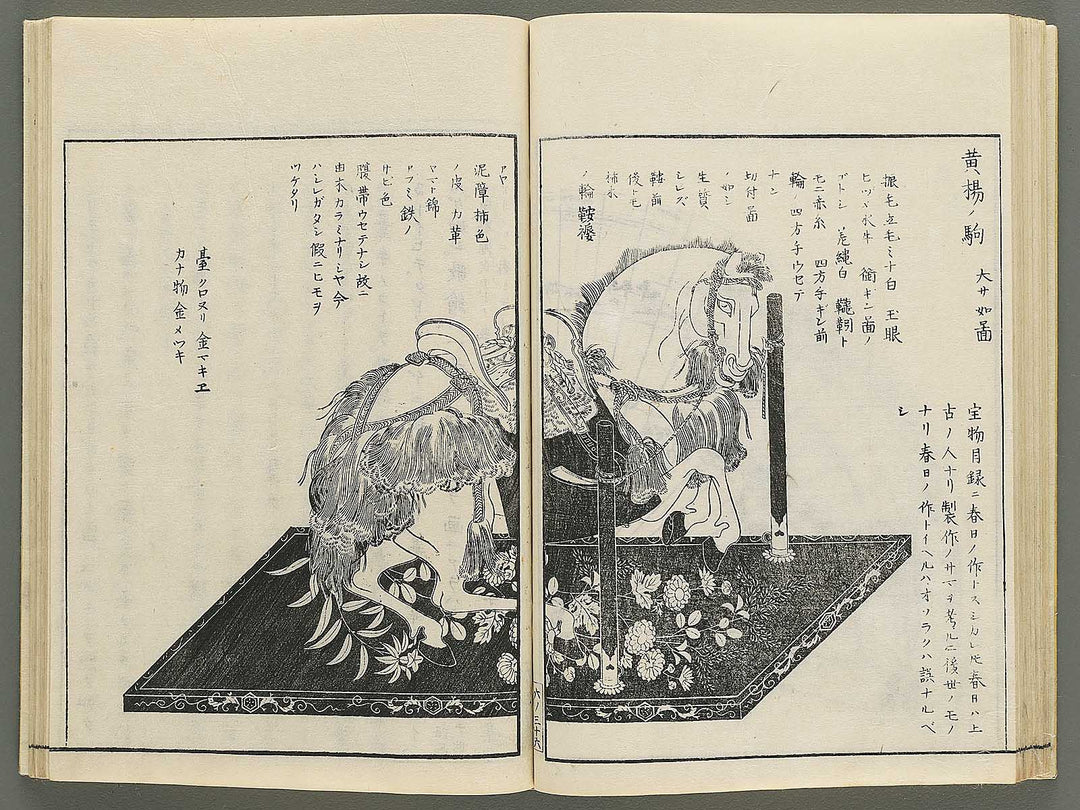 黄楊ノ駒 大サ如圖
宝物目録ニ春日ノ作トスシカレ𪜈春日ハ上
古ノ人ナリ製作ノサマヲ考ルニ後世ノモノ
ナリ春日ノ作トイヘルハオソラクハ誤ナルベ
シ
振毛立毛ミナ白 玉眼
ヒツメ水牛 衘キニ圖ノ
ゴトシ 差縄白 鞦ト
モニ赤糸 四方手キシ前
輪ノ四方手ウセテ
ナシ
切付圖
ノ如シ
生質
シレズ
鞍前
後トモ
ノ輪鞍褥
アヤ
泥障柿色
ノ皮 力革
ヤマト錦
アフミ鉄ノ
サビ色
腹帯ウセテナシ故ニ
由木カラミナリシヤ今
ハシレガタシ假ニヒモヲ
ツケタリ
臺 クロヌリ 金マキヱ
カナ物金メツキ
六ノ三十六